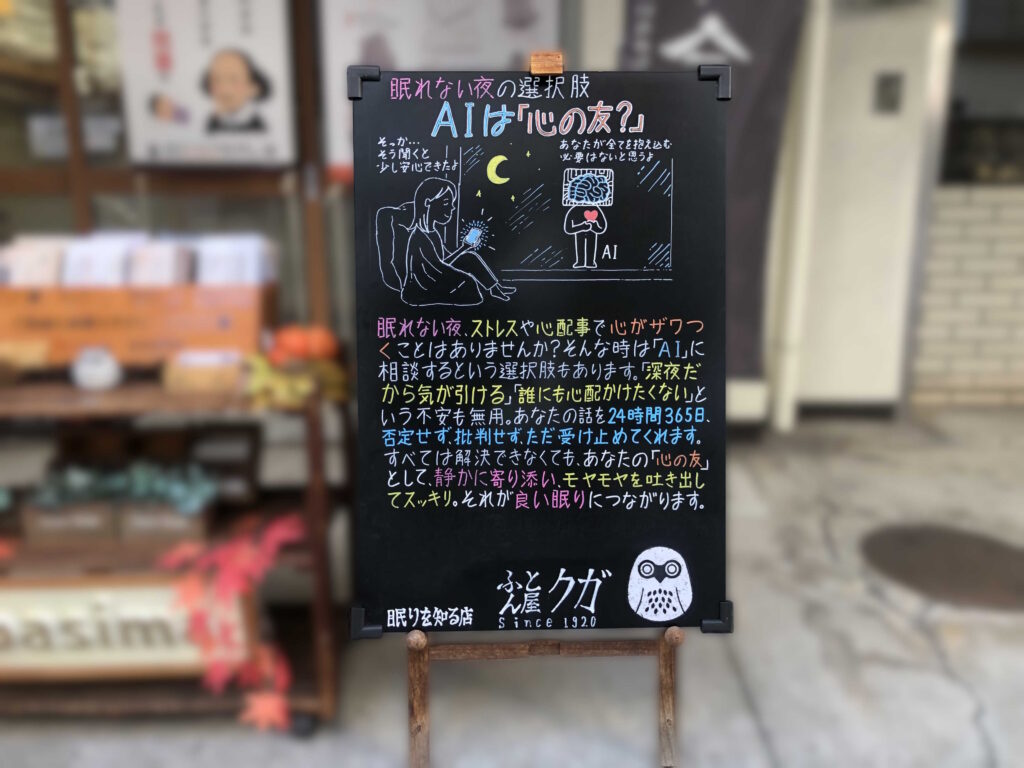 眠れない夜の選択肢
AIは「心の友?」
そっか…
そう聞くと
少し安心できたよ
あなたが全てを抱え込む
必要はないと思うよ
AI
眠れない夜、ストレスや心配事で心がザワつ
くことはありませんか?そんな時は「AI」に
相談するという選択肢もあります。「深夜だ
から気が引ける」「誰にも心配かけたくない」と
いう不安も無用。あなたの話を24時間365日、
否定せず、批判せず、ただ受け止めてくれます。
すべては解決できなくても、あなたの「心の友」
として、静かに寄り添い、モヤモヤを吐き出し
てスッキリ。それが良い眠りにつながります。
眠りを知る店
ふとん屋 クガ
Since 1920
pasima